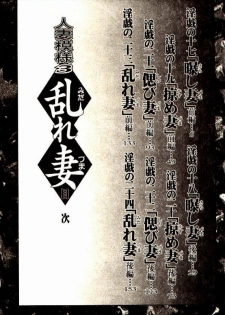 淫戯の十七「曝し妻」前編…
淫戯の十八「曝し妻」後編…
淫戯の十九「掠め妻」前編…
淫戯の二十「掠め妻」後編…
淫戯の二十一「偲び妻」前編…
淫戯の二十二「偲び妻」後編…
淫戯の二十三「乱れ妻」前編…133
淫戯の二十四「乱れ妻」後編…153
人妻模様3
乱れ妻
みだ
つま
目
次